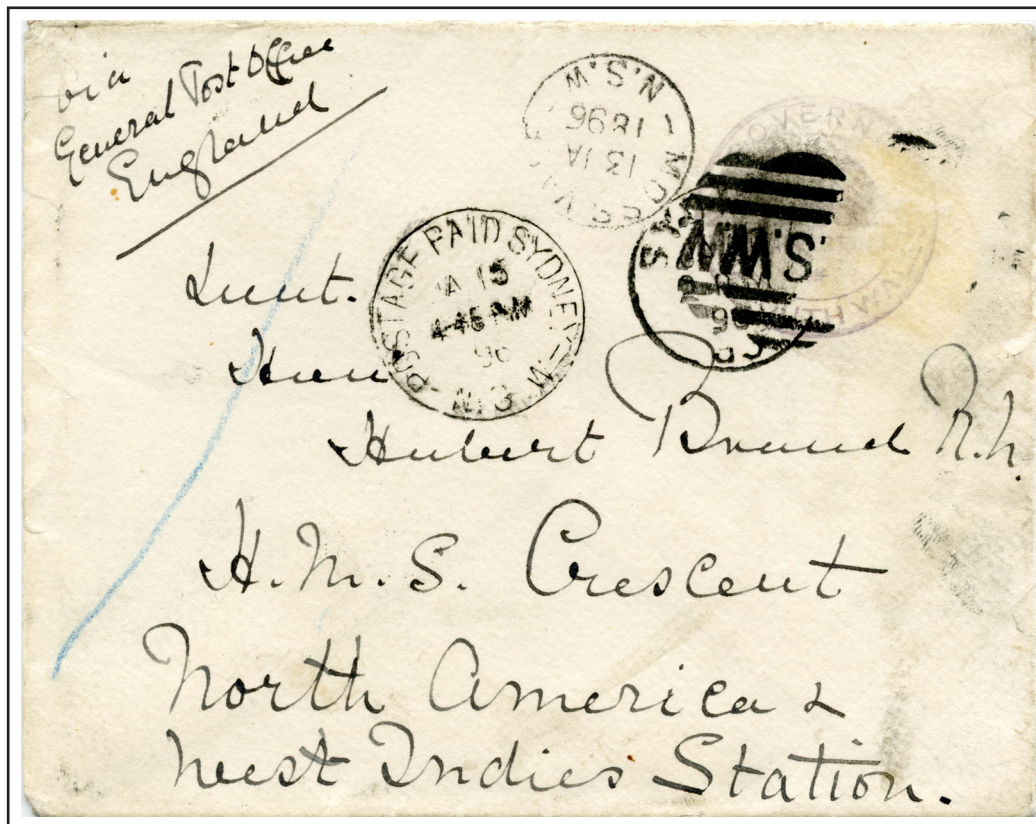 via
General Post Office
England
N.S.W
13 JA
1896
GOVERN
POSTAGE PAID SYDNEY
JA 15
4-45 PM
96
N.S.W
Lieut.
Hon
Hubert Brand R.N.
H.M.S. Crescent
North America &
West Indies Station.